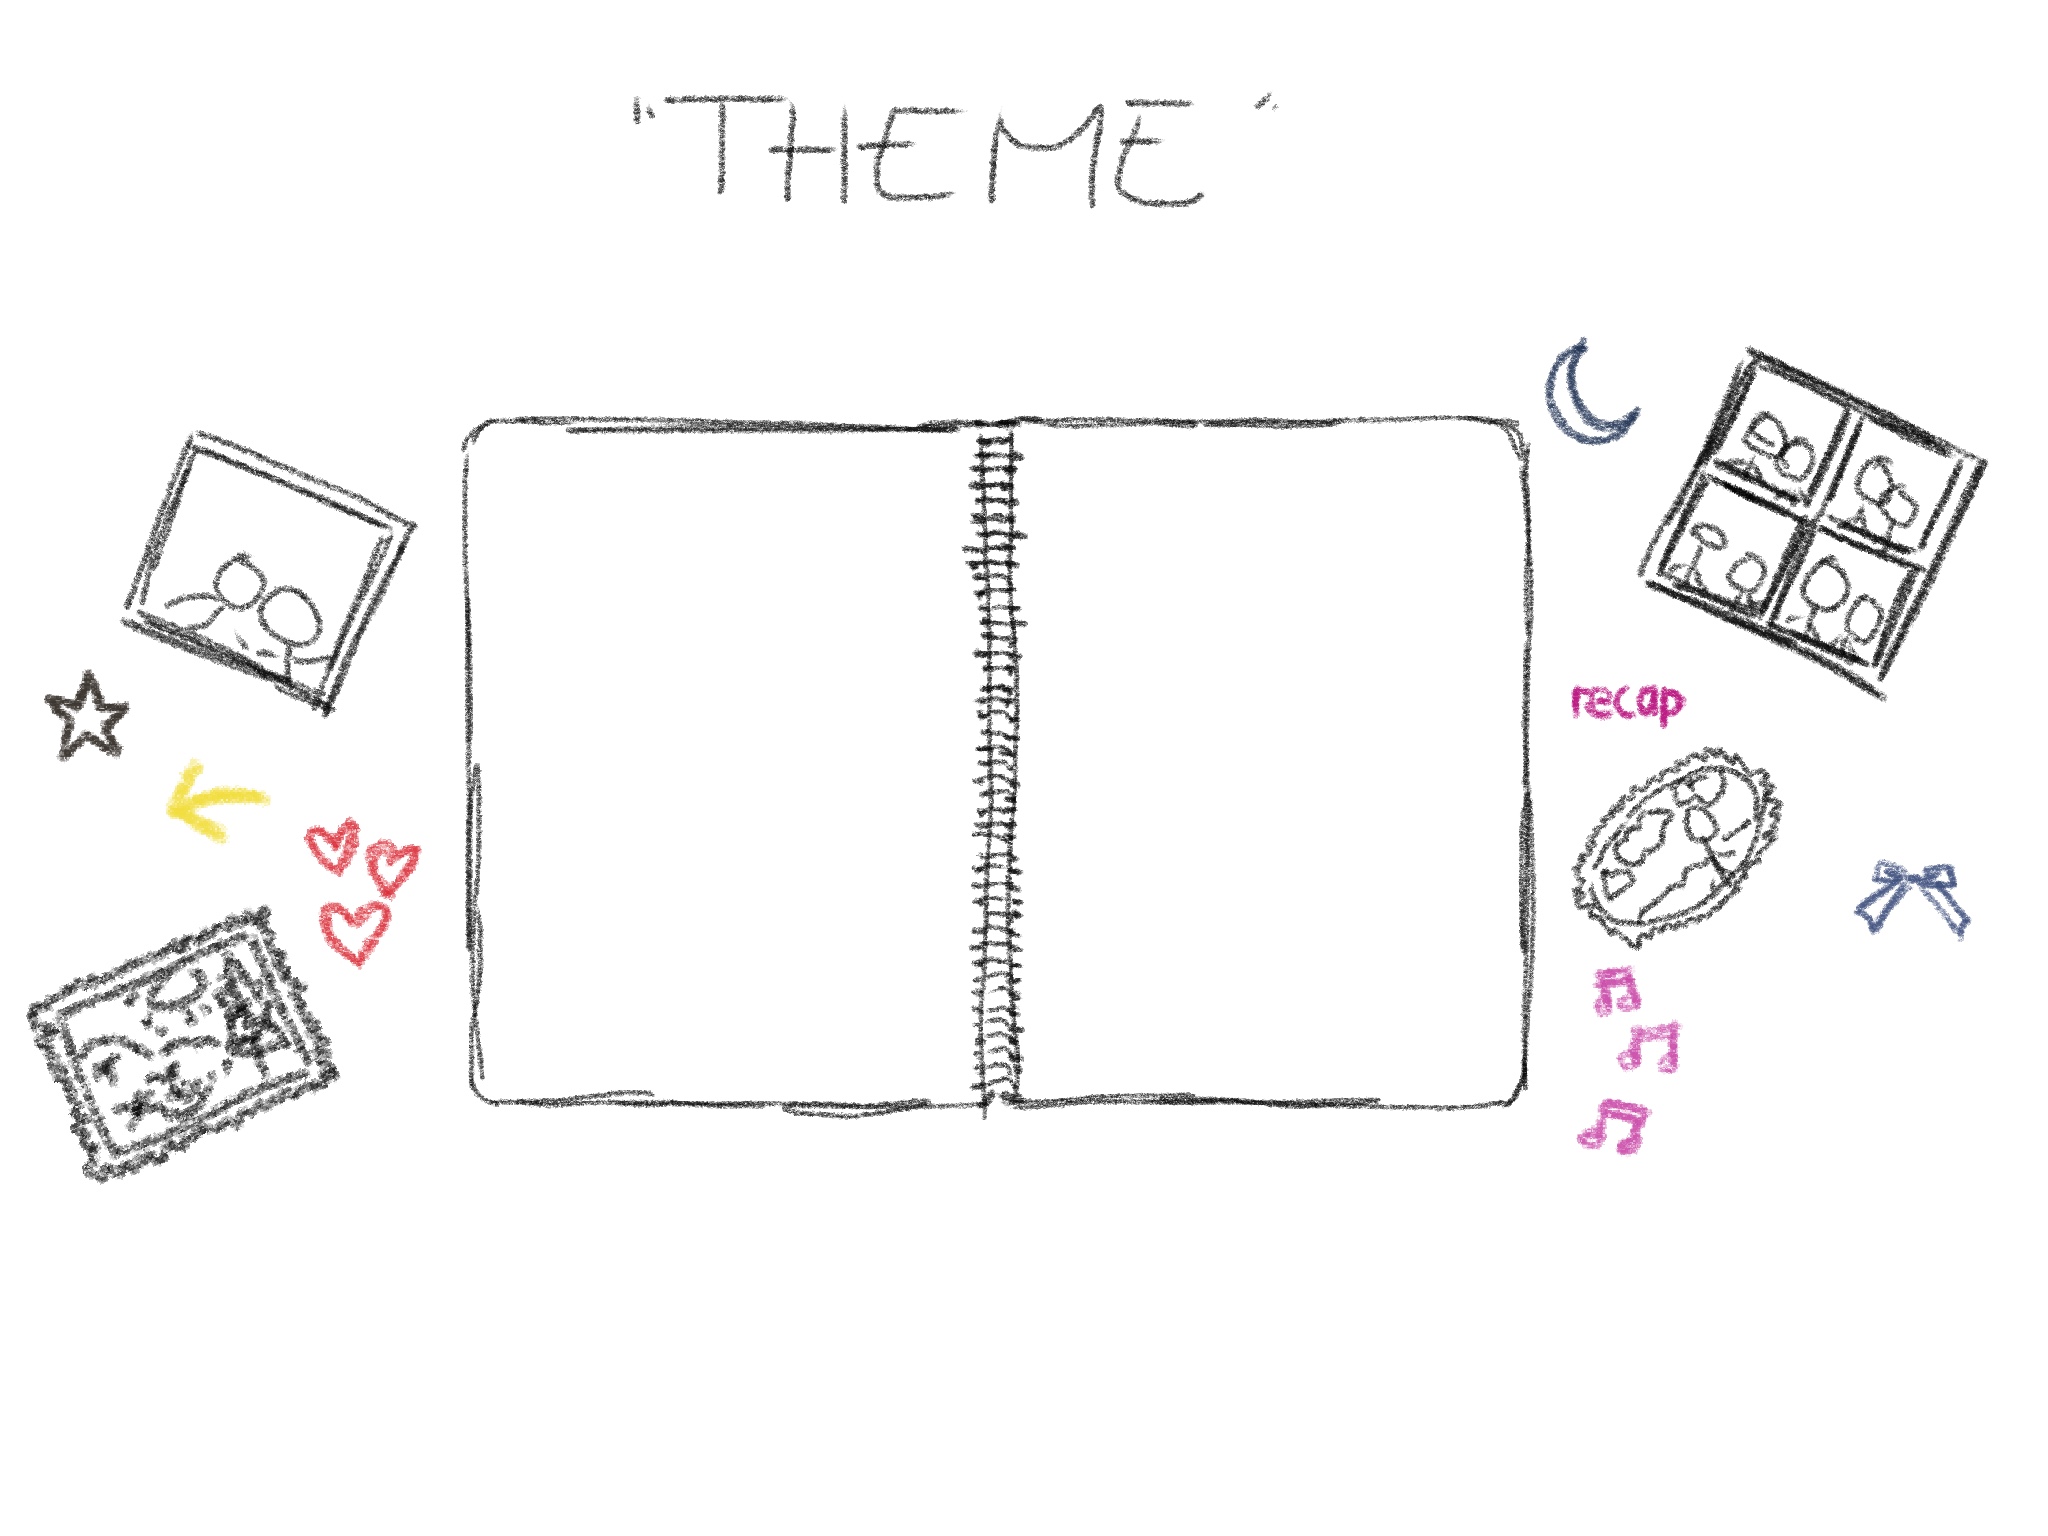 "THEME"
recap